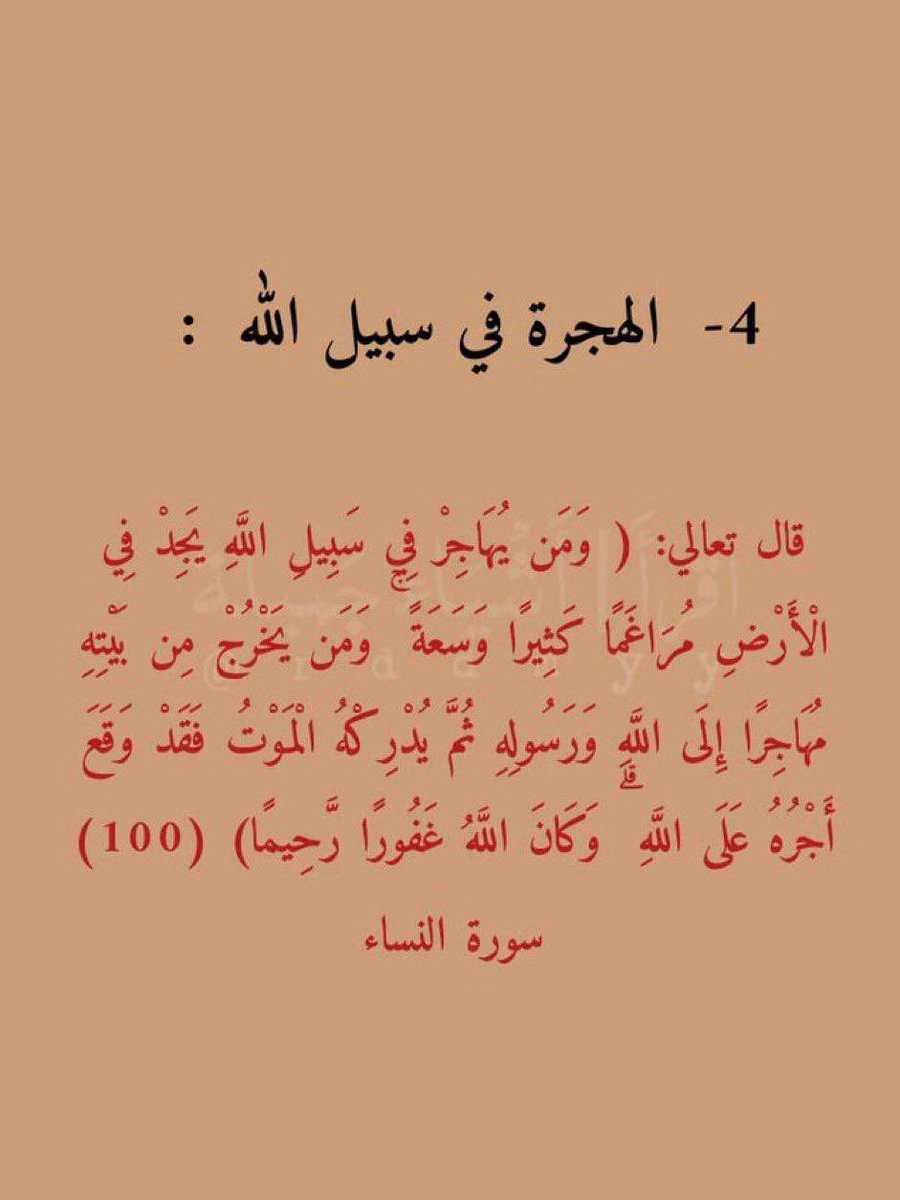 4- الهجرة في سبيل الله :
قال تعالي: ( وَمَن يُهَاجِرْ فِي سَبِيلِ اللَّهِ يَجِدْ فِي
الْأَرْضِ مُرَاغَمًا كَثِيرًا وَسَعَةً ۚ وَمَن يَخْرُجْ مِن بَيْتِهِ
مُهَاجِرًا إِلَى اللَّهِ وَرَسُولِهِ ثُمَّ يُدْرِكْهُ الْمَوْتُ فَقَدْ وَقَعَ
أَجْرُهُ عَلَى اللَّهِ ۗ وَكَانَ اللَّهُ غَفُورًا رَّحِيمًا) (100)
سورة النساء